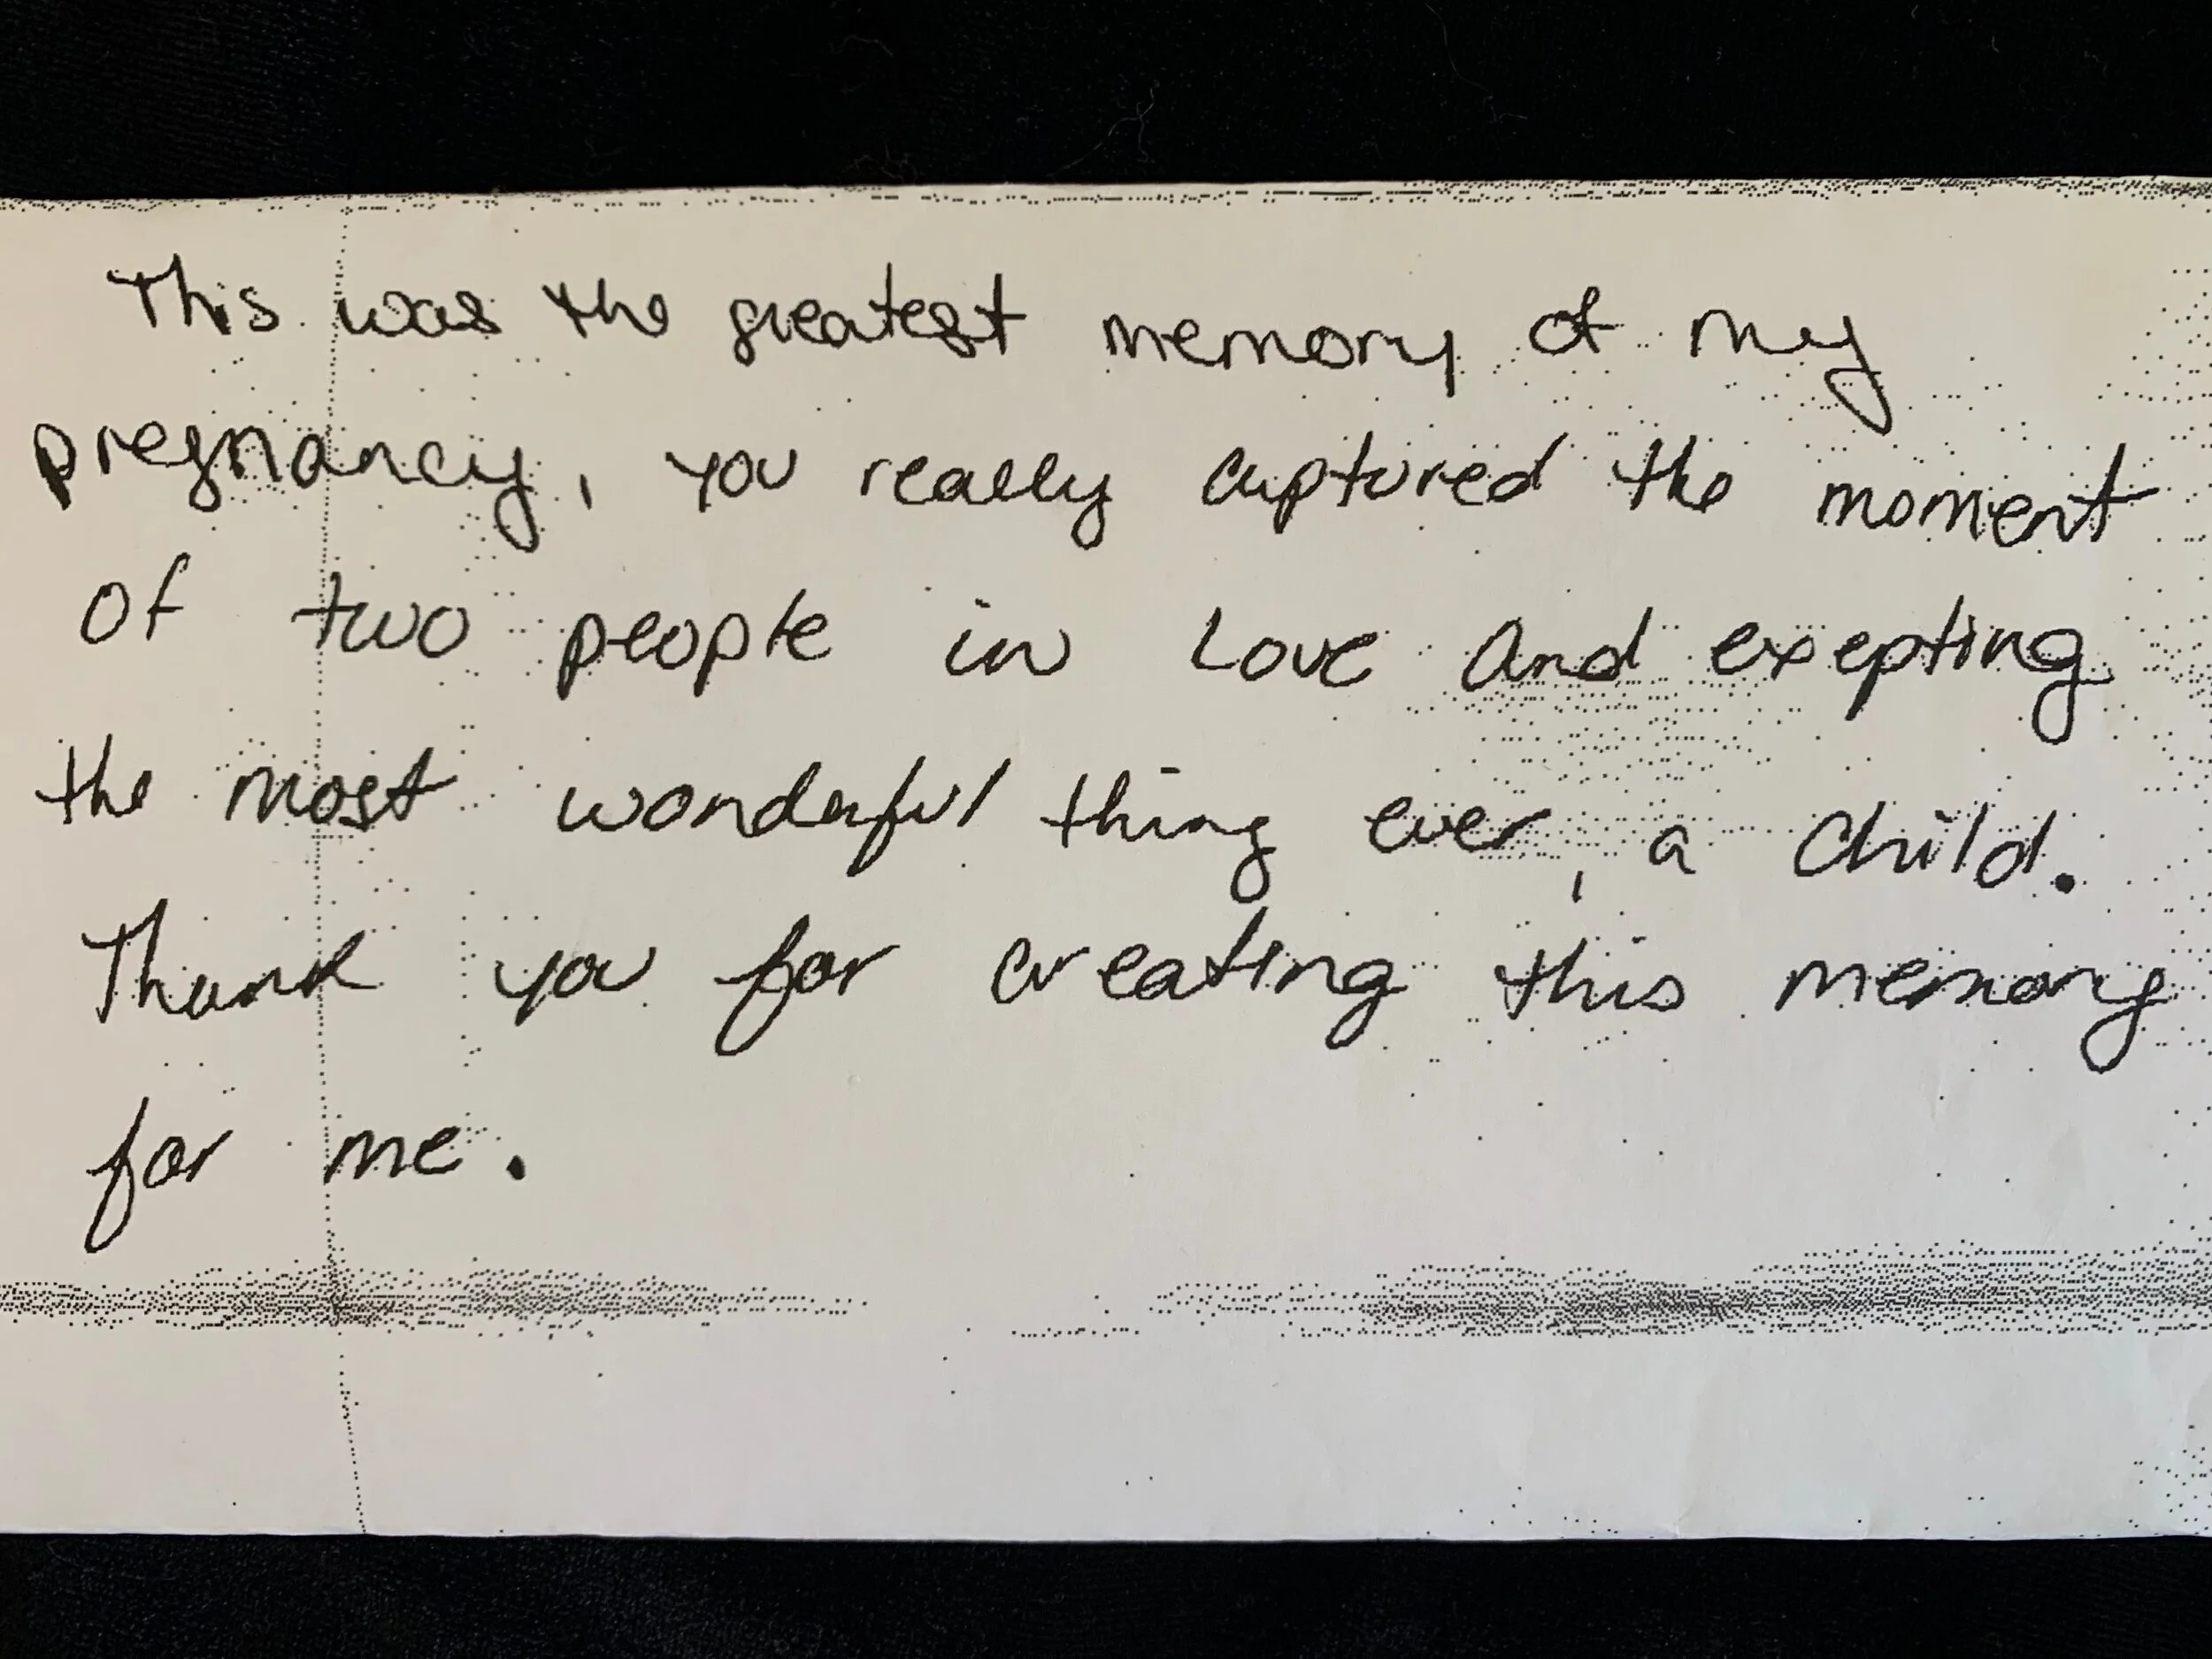 This was the greatest memory of my
pregnancy, you really captured the moment
of two people in Love and exepting
the most wonderful thing ever, a Child.
Thank you for creating this memory
for me.